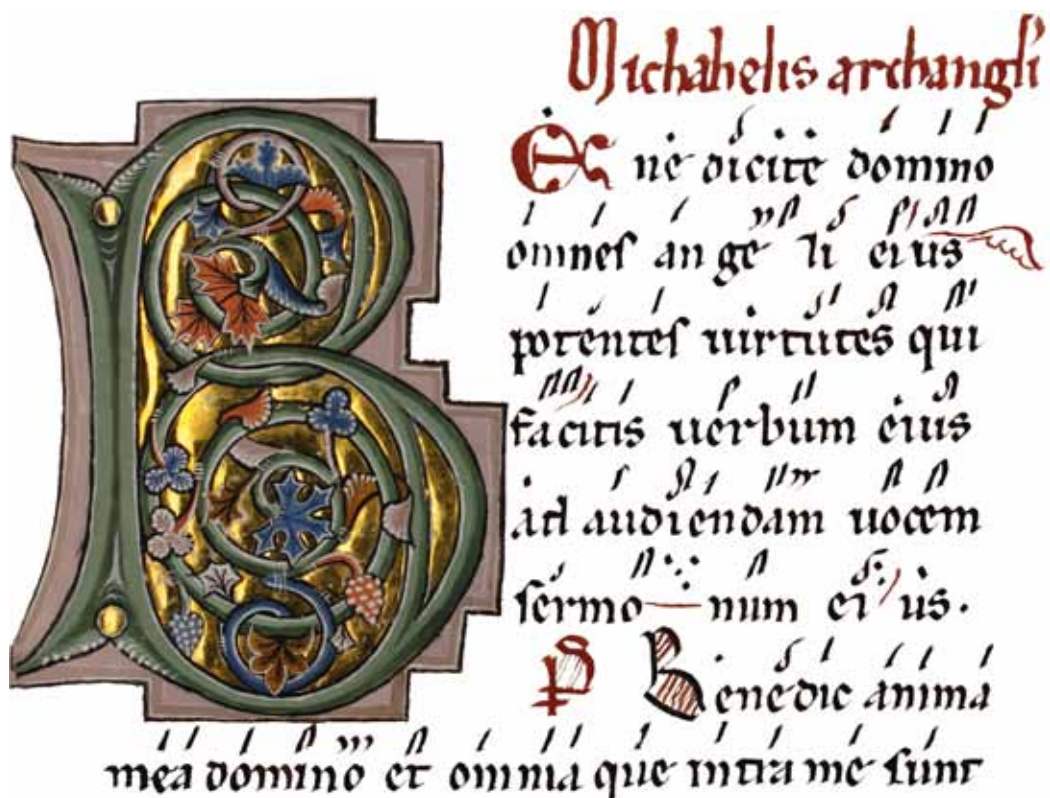 Michahelis archangli
BE ne dicite domino
omnes an ge li eius
potentes uirtutes qui
facitis uerbum eius
ad audiendam uocem
sermo num ei us.
P Benedic anima
mea domino et omnia que intra me sunt